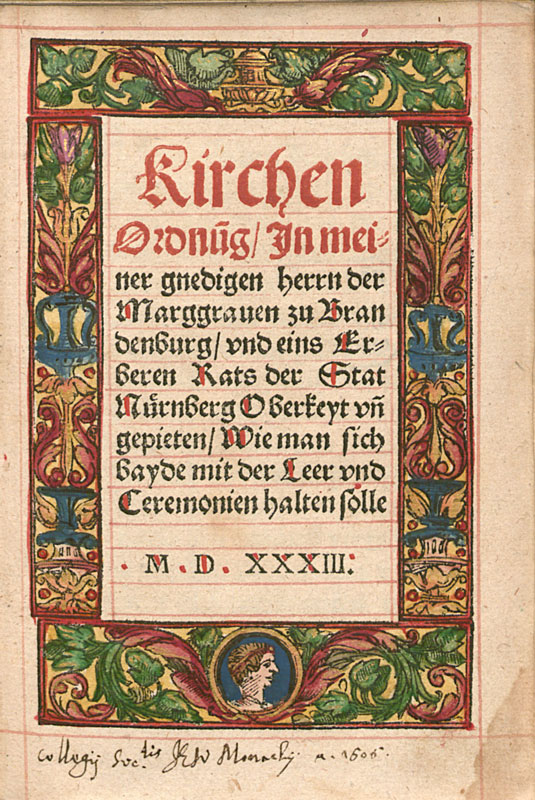 Kirchen
Ordnũg/ In mei⸗
ner gnedigen herrn der
Marggrauen zu Bran
denburg/ vnd eins Er⸗
beren Rats der Stat
Nürnberg Oberkeyt vñ
gepieten/ Wie man sich
bayde mit der Leer vnd
Ceremonien halten solle
. M. D. XXXIII:
Collegij Soc.tis